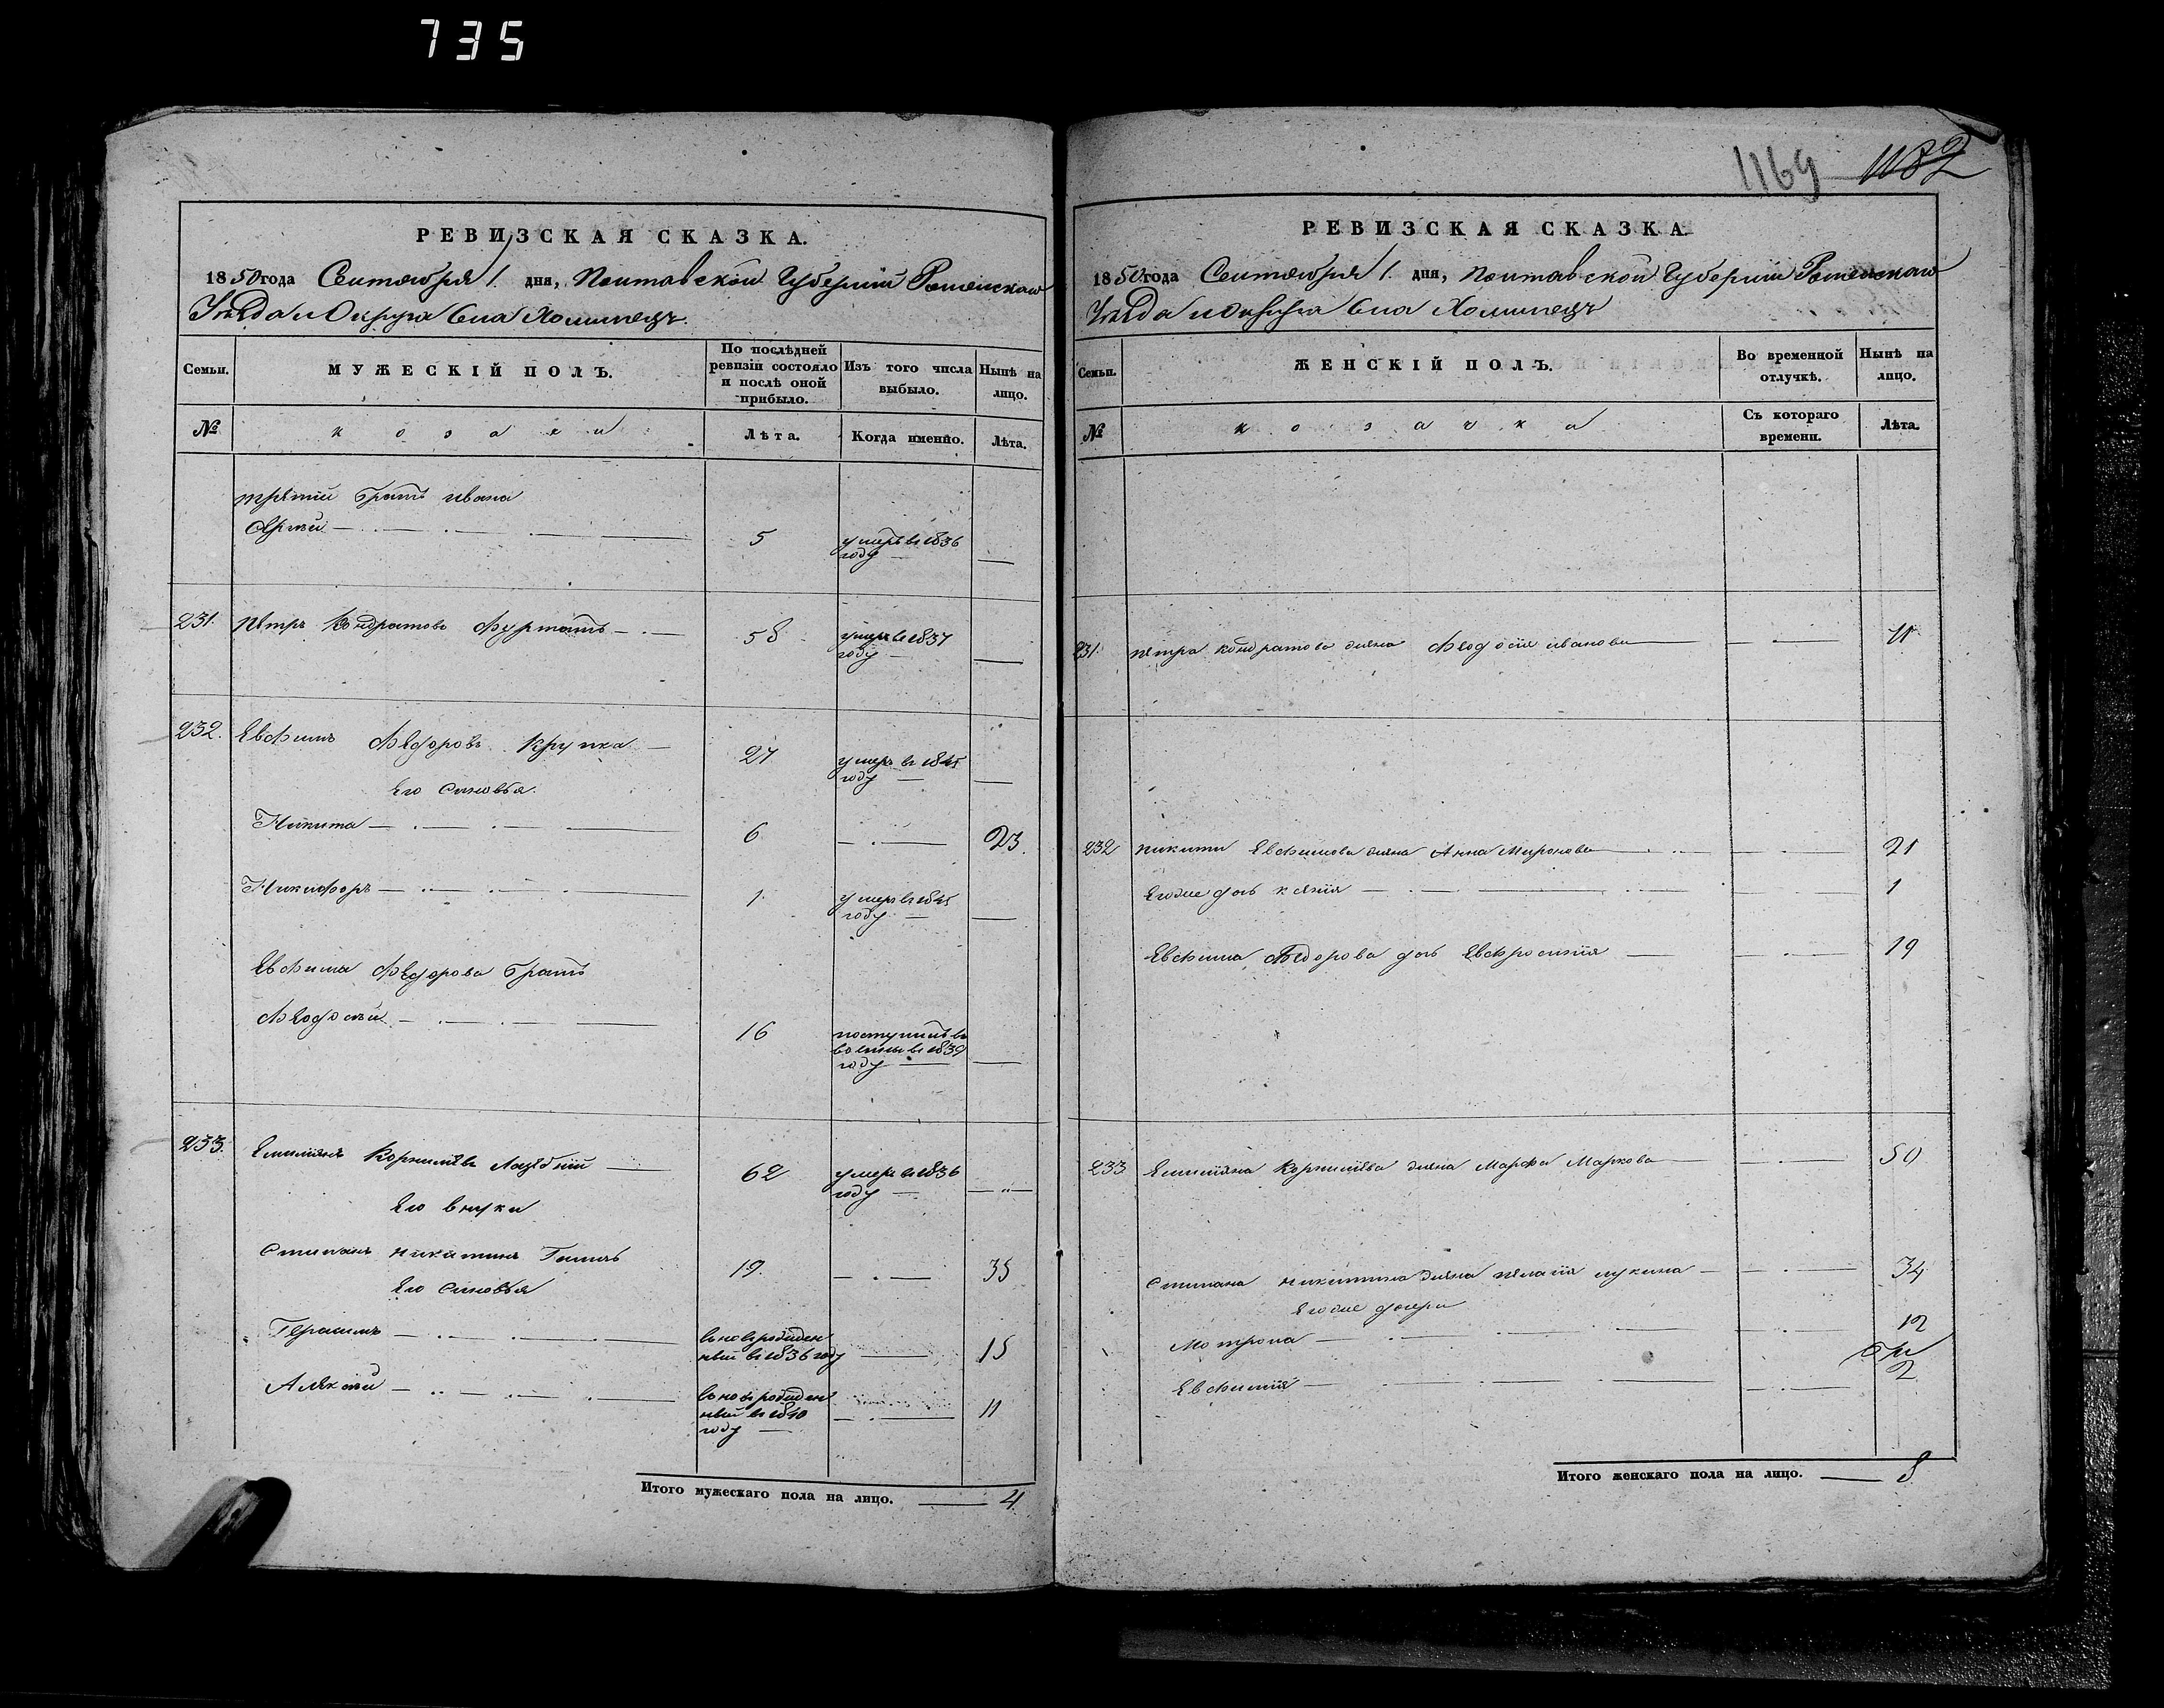 735
1169 1182
РЕВИЗСКАЯ СКАЗКА.
1850 года Сентября 1. дня, Полтавской Губернiи Роменскаго
Уезда и Округа Села Хоминецъ.
Семьи.
МУЖЕСКІЙ ПОЛЪ.
По послѣдней ревизіи состояло и послѣ оной прибыло.
Изъ того числа выбыло.
Нынѣ на лицо.
№
козаки
Лѣта.
Когда именно.
Лѣта.
третiй братъ Ивана
5 умеръ въ 1836
году —
231. Петръ Кондратовъ Фурматъ — 58 умеръ въ 1837
году —
232. Евфимъ Федоровъ Крупка — 27 умеръ въ 1845
году —
Его Сыновья.
Никита — 6 — 23.
Никифоръ — 1. умеръ въ 1845
году —
Евфима Федорова братъ
Феодосiй — 16 поступилъ въ
воины въ 1839
году —
233. Емилiянъ Корнилiевъ — 62 умеръ въ 1836
году —
Его внуки
Стипанъ Никитинъ 19. — 35
Его Сыновья
Герасимъ — вновърожден
ный въ 1836 году — 15
Алексѣй — вновърожден
ный въ 1840
году — 11
Итого мужескаго пола на лицо. — 4.
РЕВИЗСКАЯ СКАЗКА.
1850 года Сентября 1. дня, Полтавской Губернiи Роменскаго
Уезда и Округа Села Хоминецъ
Семьи.
ЖЕНСКІЙ ПОЛЪ.
Во временной отлучкѣ.
Нынѣ на лицо.
№
козачки
Съ котораго времени.
Лѣта.
231. Петра Кондратова жена Феодосiя Иванова —
232 Никиты Евфимова жена Анна Миронова — 21
Егоже дочь Ксенiя — 1
Евфима Федорова дочь Евфросинiя — 19
233 Емилiяна Корнилiева жена Марфа Маркова — 50
Стипана Никитина жена Пелагiя Лукина — 34
Егоже дочери
Мотрона — 12
Евфимiя — 2
Итого женскаго пола на лицо. — 8